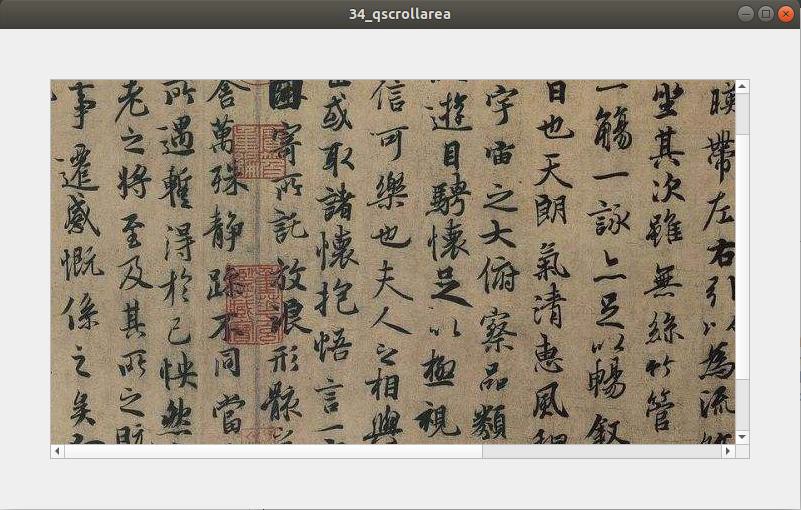 34_qscrollarea
暎帶左右引以為流
坐其次雖無絲竹管
一觴一詠亦足以暢叙
日也天朗氣清惠風
宇宙之大俯察品類
遊目騁懷足以極視
信可樂也夫人之相與
或取諸懷抱悟言一
因寄所託放浪形骸
舍萬殊靜躁不同當
所遇蹔得於己怏然
老之將至及其所之既
事遷感慨係之矣